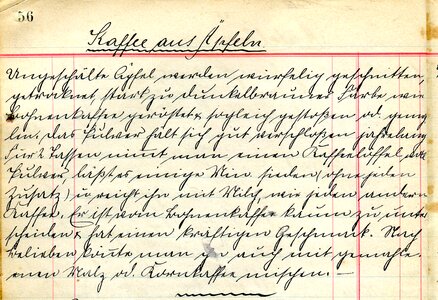 56
Kaffee aus Äpfeln
Ungeschälte Äpfel werden würfelig geschnitten,
getrocknet, stark zu dunkelbrauner Farbe wie
Bohnenkaffee geröstet u. sogleich gestoßen od. gemah
len. Das Pulver hält sich gut verschloßen jahrelang.
Für 2 Tassen nimt man einen Kaffeelöffel voll
Pulver, läßt es einige Min. sieden (ohne jeden
Zusatz) u. reicht ihn mit Milch, wie jeden andern
Kaffee. Er ist vom Bohnenkaffee kaum zu unter
scheiden u. hat einen kräftigen Geschmack. Nach
Belieben könte man ihn auch mit gemahle
nen Malz od. Kornkaffee mischen. —